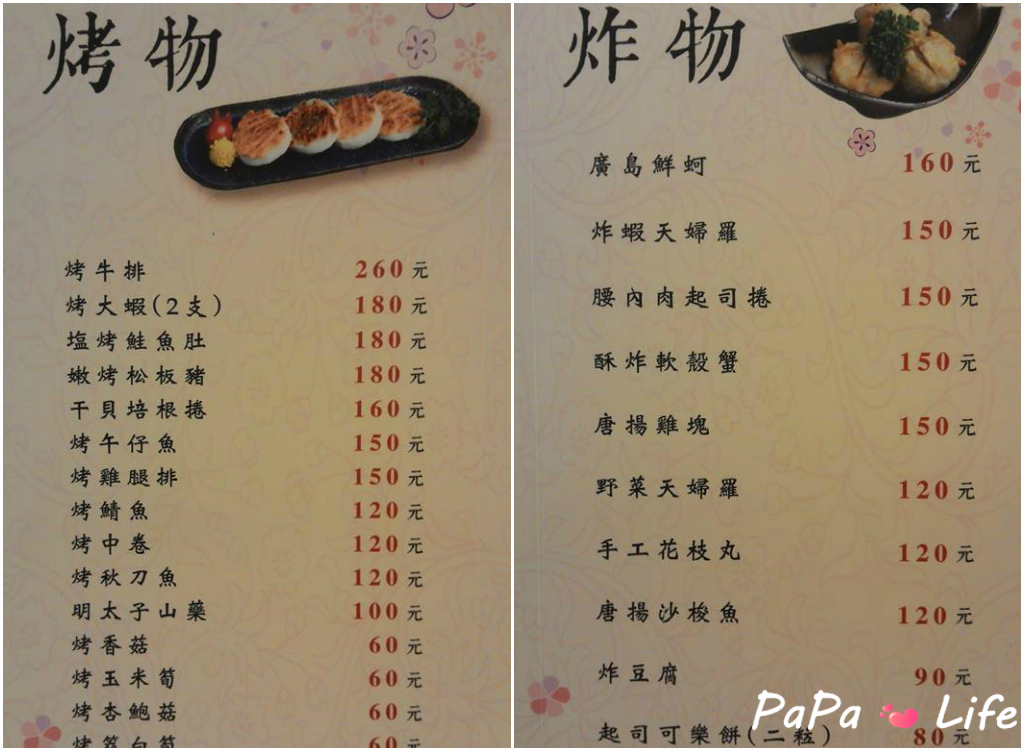 烤物
烤牛排 260元
烤大蝦(2支) 180元
塩烤鮭魚肚 180元
嫩烤松板豬 180元
干貝培根捲 160元
烤午仔魚 150元
烤雞腿排 150元
烤鯖魚 120元
烤中卷 120元
烤秋刀魚 120元
明太子山藥 100元
烤香菇 60元
烤玉米筍 60元
烤杏鮑菇 60元
烤筊白筍 60元
炸物
廣島鮮蚵 160元
炸蝦天婦羅 150元
腰內肉起司捲 150元
酥炸軟殼蟹 150元
唐揚雞塊 150元
野菜天婦羅 120元
手工花枝丸 120元
唐揚沙梭魚 120元
炸豆腐 90元
起司可樂餅(二粒) 80元
PaPa Life